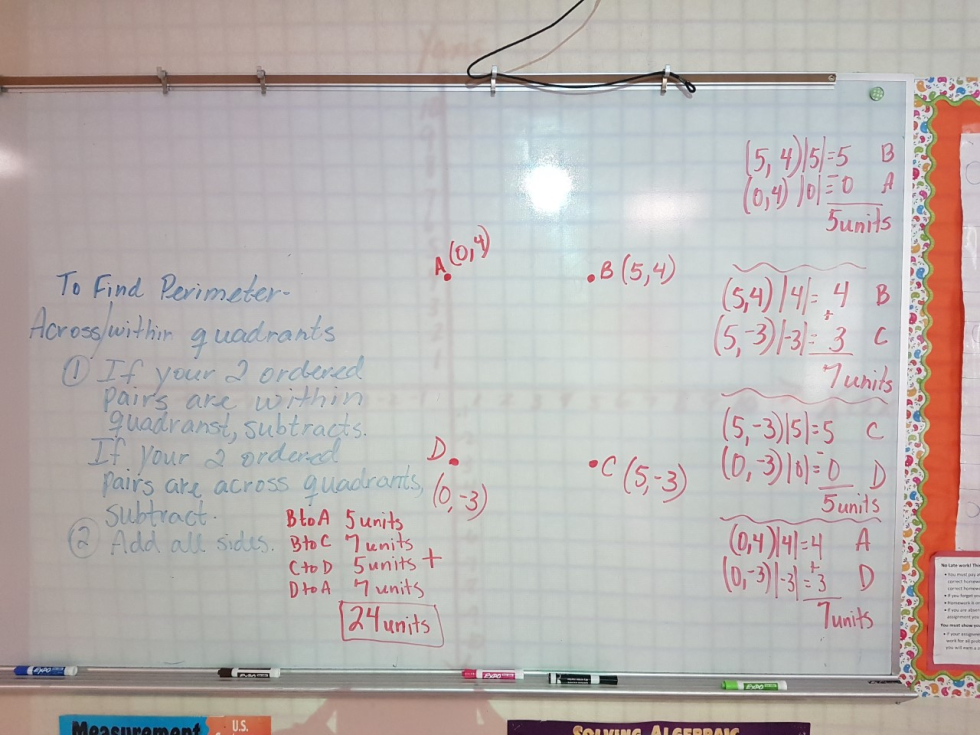 To Find Perimeter-
Across/within quadrants
① If your 2 ordered
pairs are within
quadranst, subtracts.
If your 2 ordered
pairs are across quadrants,
subtract.
② Add all sides.
A (0,4)
B (5,4)
D
(0,-3)
C (5,-3)
B to A 5 units
B to C 7 units
C to D 5 units +
D to A 7 units
24 units
(5, 4) |5|=5 B
(0,4) |0|=0 A
-
5 units
(5,4) |4|= 4 B
+
(5,-3) |-3|= 3 C
7 units
(5,-3) |5|=5 C
-
(0, -3) |0|=0 D
5 units
(0,4) |4|=4 A
+
(0,-3) |-3|=3 D
7 units
EXPO
EXPO
EXPO
EXPO
No Late work!
You must show
Measurement
U.S.
SOLVING ALGEBRAIC